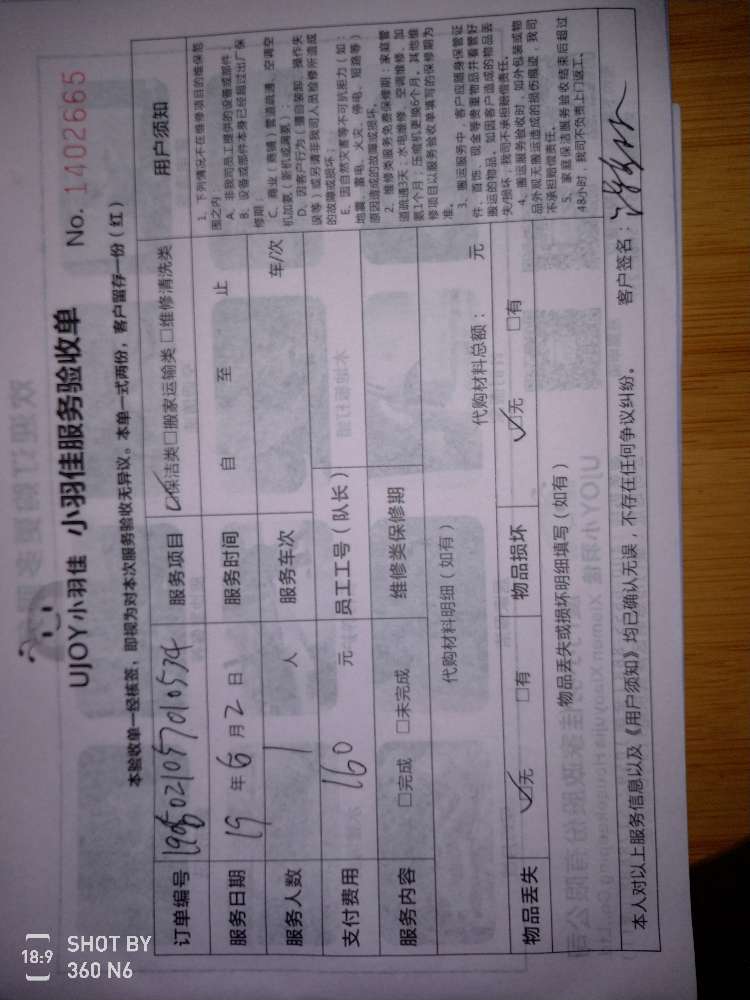 UJOY小羽佳 小羽佳服务验收单 No. 1402665
本验收单一经核签,即视为对本次服务验收无异议。本单一式两份,客户留存一份(红)
订单编号 服务项目 ☑保洁类□搬家运输类 □维修清洗类 用户须知
服务日期 19 年 6 月 2 日 服务时间 自 至 止
服务人数 1 人 服务车次 车/次
支付费用 160 元 员工工号(队长)
服务内容 □完成 □未完成 维修类保修期
代购材料明细(如有) 代购材料总额: 元
物品丢失 ☑无 □有 物品损坏 ☑无 □有
物品丢失或损坏明细填写(如有)
1、下列情况不在维修项目的维保范
围之内:
A、非我司员工提供的设备或部件
B、设备或部件本身已经超过出厂保
修期;
C、商业(商铺)管道疏通、空调空
机加氨(新机或漏氨);
D、因客户行为(擅自装卸、操作失
误等)或另请非我司人员检修所造成
的故障或损坏;
E、因自然灾害等不可抗拒力(如:
地震、雷电、火灾、停电、短路等)
原因造成的故障或损坏。
2、维修类服务免费保修期:家庭管
道疏通3天,水电维修、空调维修、加
氨1个月;压缩机更换6个月,其他维
修项目以服务验收单填写的保修期为
准。
3、搬运服务中,客户应随身保管证
件、首饰、现金等贵重物品并看管好
搬运的物品,如因客户造成的物品丢
失/损坏,我司不承担赔偿责任。
4、搬运服务验收时,如外包装或物
品外观无搬运造成的损伤痕迹,我司
不承担赔偿责任。
5、家庭保洁服务验收结束后超过
48小时,我司不负责上门返工。
本人对以上服务信息以及《用户须知》均已确认无误,不存在任何争议纠纷。 客户签名:
18:9 SHOT BY
360 N6